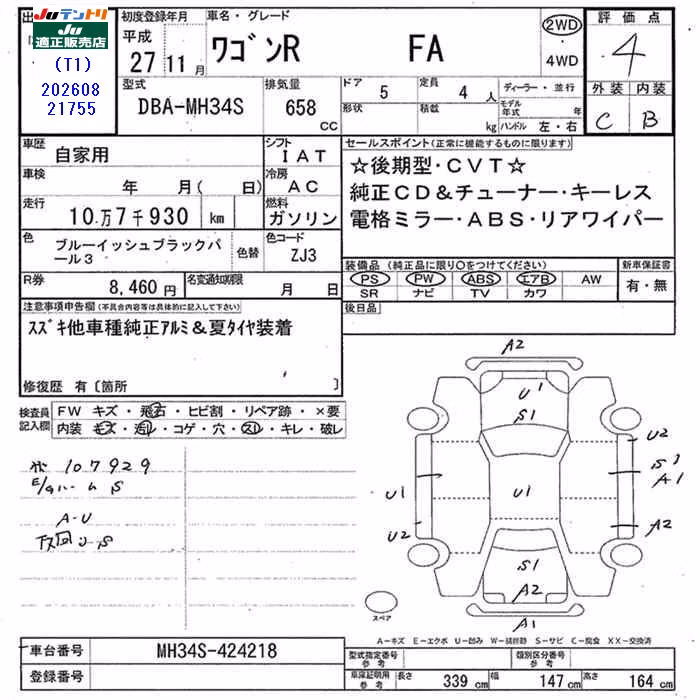 出
JUテントリ
JU 適正販売店
(T1)
202608
21755
初度登録年月
平成
27 11 月
車名・グレード
ワゴンR FA
2WD
4WD
評価点
4
外装 内装
C B
型式
DBA-MH34S
排気量
658
CC
ドア 5
定員 4 人
形状
積載
kg
ディーラー・並行
モデル年式 年
ハンドル 左・右
車歴 自家用
シフト IAT
車検 年 月( 日)
冷房 AC
走行 10万7千930 km
燃料 ガソリン
色 ブルーイッシュブラックパール3
色替
色コード ZJ3
R券 8,460円
名変通知期限 月 日
セールスポイント(正常に機能するものに限ります)
☆後期型・CVT☆
純正CD&チューナー・キーレス
電格ミラー・ABS・リアワイパー
装備品(純正品に限り○をつけてください)
PS PW ABS エアB AW
SR ナビ TV カワ
新車保証書
有・無
後日品
注意事項申告欄(不具合内容等は具体的に記入して下さい)
スズキ他車種純正アルミ&夏タイヤ装着
修復歴 有〔箇所 〕
検査員記入欄
FW キズ・飛石・ヒビ割・リペア跡・×要
内装 キズ・汚れ・コゲ・穴・スレ・キレ・破レ
107929
S
A-U
下回り-S
A2
U1
S1
U2
S1
A1
U1
U1
U2
A2
S1
A2
A1
スペア
A−キズ E−エクボ U−凹み W−補修跡 S−サビ C−腐食 XX−交換済
車台番号 MH34S-424218
登録番号
型式指定番号 参考
類別区分番号 参考
車庫証明用 参考
長さ 339 cm
幅 147 cm
高さ 164 cm